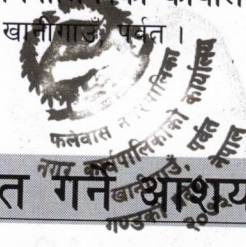 खानीगाउँ, पर्वत ।
फलेवास नगरपालिका
नगर कार्यपालिकाको कार्यालय
खानीगाउँ, पर्वत
गण्डकी
नेपाल
त गर्ने आशय